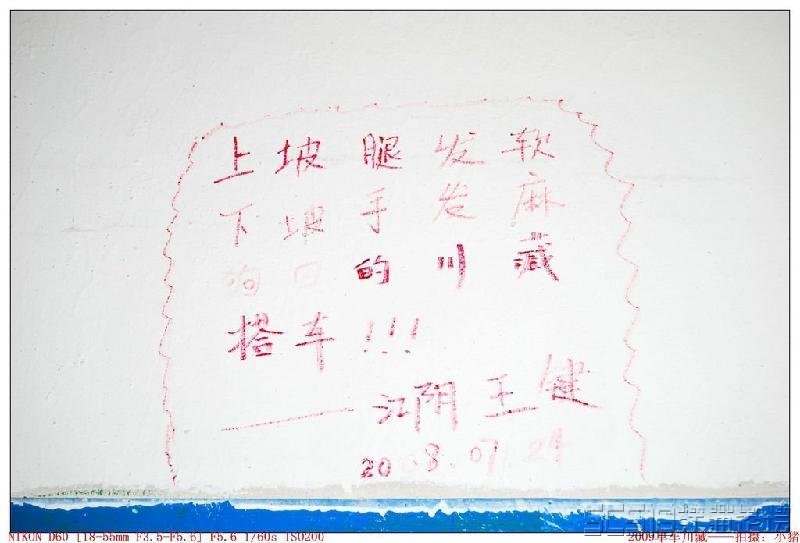 上坡腿发软
下坡手发麻
狗日的川藏
搭车!!!
——江阴王健
2008.07.24
NIKON D60 [18-55mm F3.5-F5.6] F5.6 1/60s ISO200
2009单车川藏——拍摄：小猪